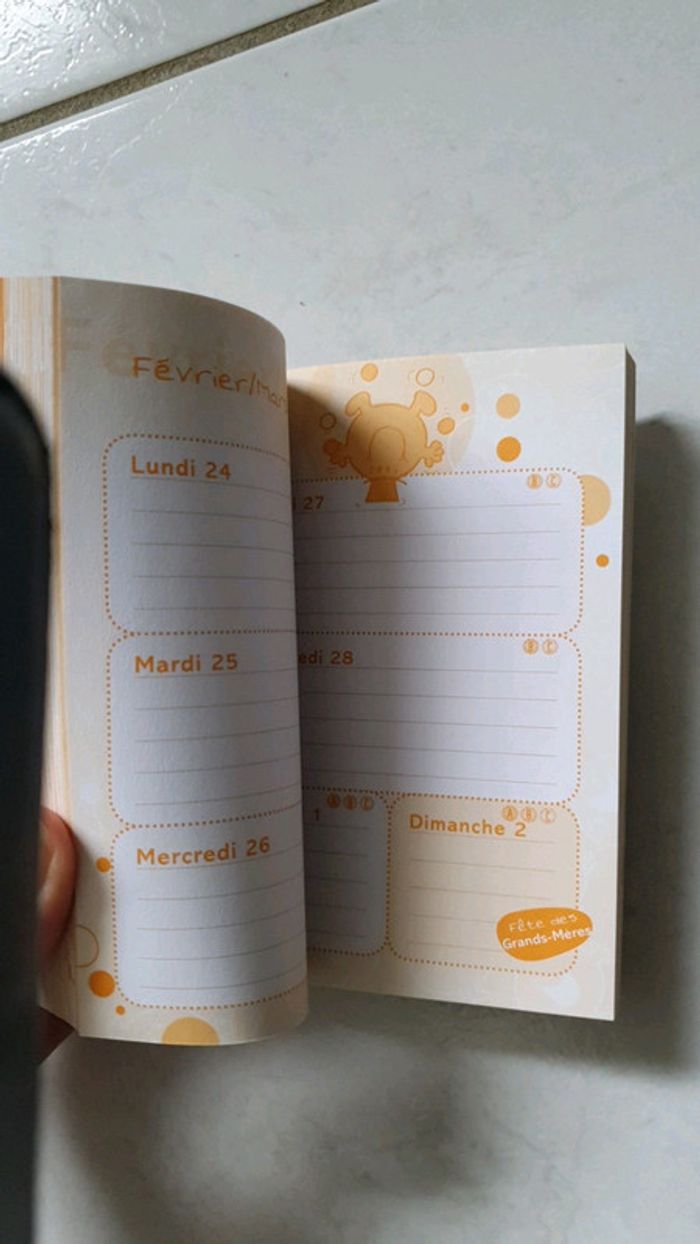 Février/Mars
Lundi 24
Mardi 25
Mercredi 26
27
B C
edi 28
B C
1
A B C
Dimanche 2
A B C
Fête des
Grands-Mères